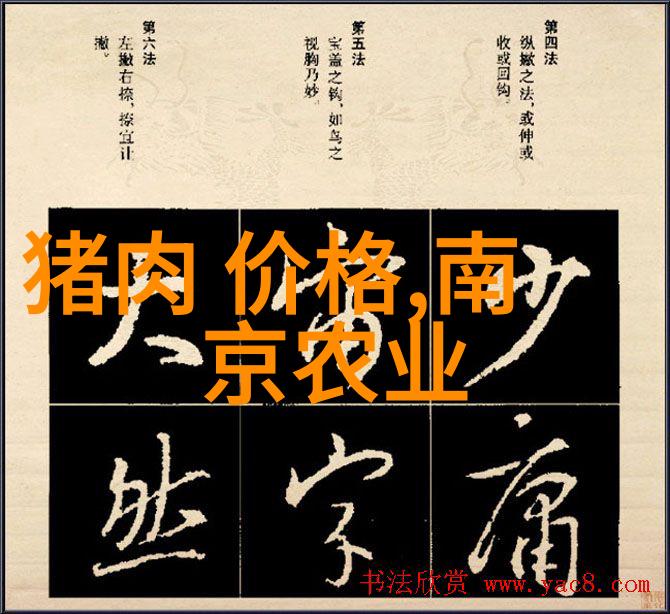 第四法
纵撇之法，或伸或
收或回钩。
第五法
宝盖之钩，如鸟之
视胸乃妙。
第六法
左撇右捺，捺宜让
撇。
猪肉 价格,南
京农业
少
庸
字
大
然
书法欣赏 www.yac8.com